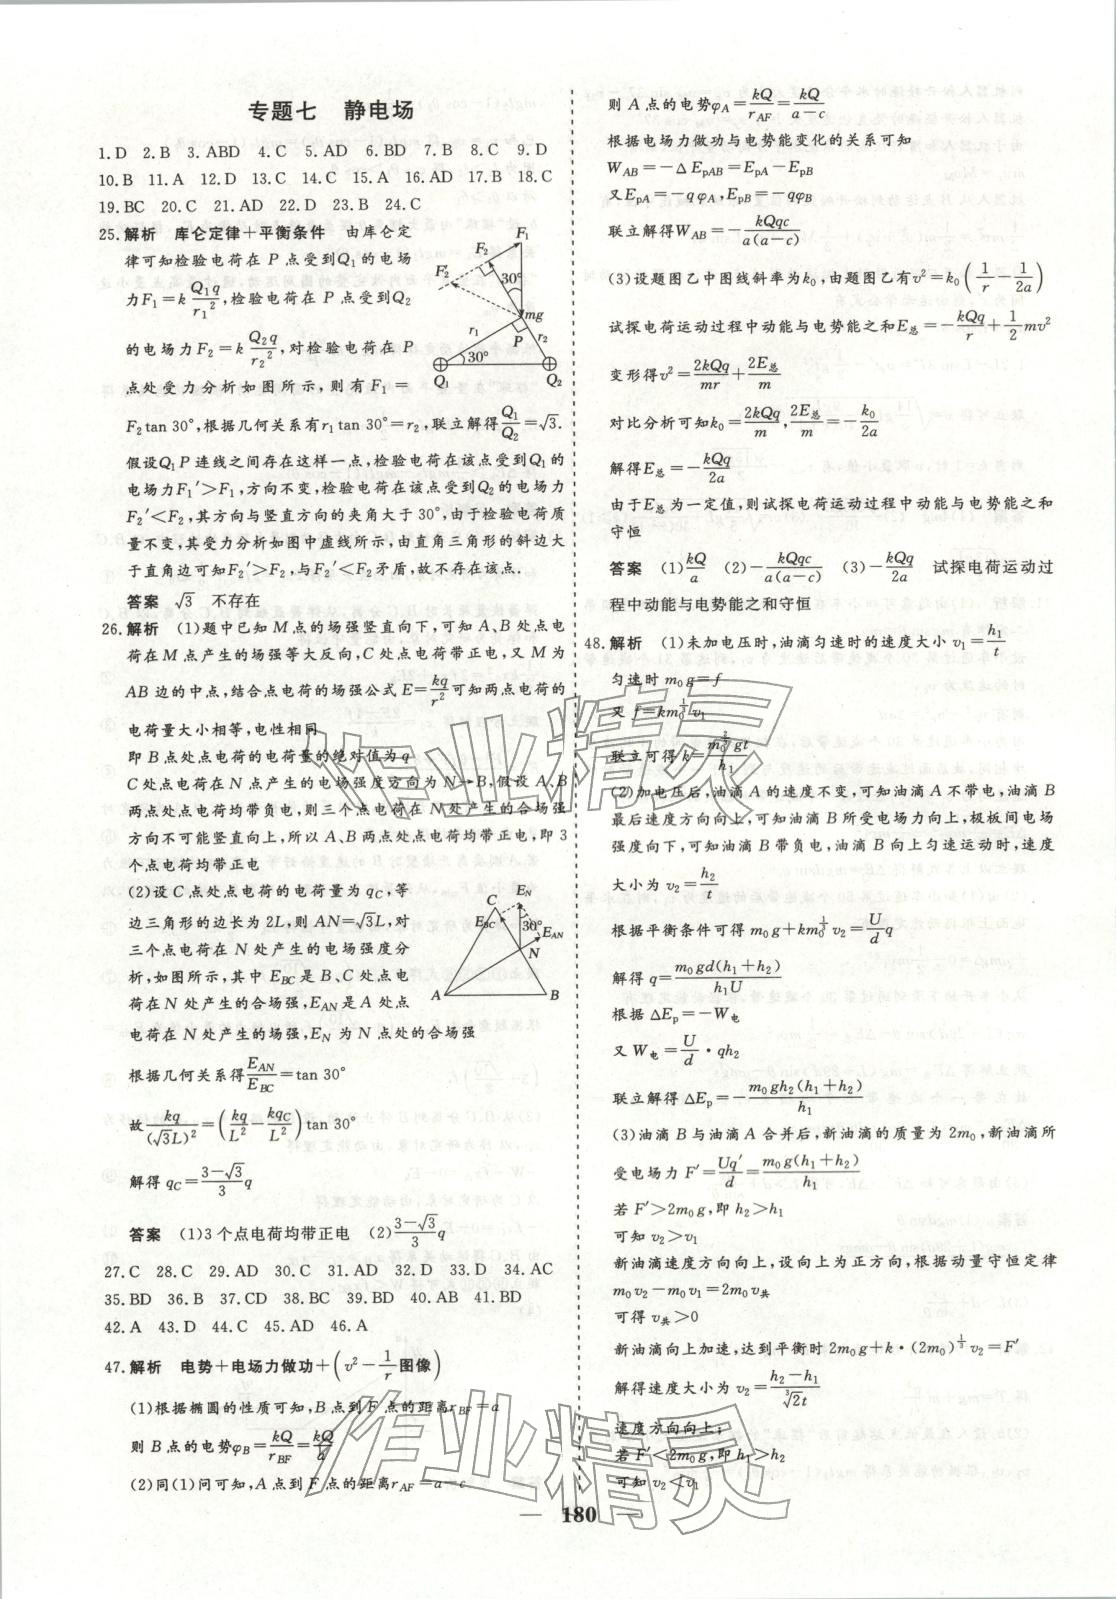 专题七 静电场
1.D 2.B 3.ABD 4.C 5.AD 6.BD 7.B 8.C 9.D
10.B 11.A 12.D 13.C 14.C 15.A 16.AD 17.B 18.C
19.BC 20.C 21.AD 22.D 23.B 24.C
25.解析 库仑定律+平衡条件 由库仑定
律可知检验电荷在P点受到Q₁的电场
力F₁=k Q₁q/r₁², 检验电荷在P点受到Q₂
的电场力F₂=k Q₂q/r₂², 对检验电荷在P
点处受力分析如图所示, 则有F₁=
F₂tan 30°, 根据几何关系有r₁tan 30°=r₂, 联立解得Q₁/Q₂=√3.
假设Q₁P连线之间存在这样一点, 检验电荷在该点受到Q₁的
电场力F₁′>F₁, 方向不变, 检验电荷在该点受到Q₂的电场力
F₂′<F₂, 其方向与竖直方向的夹角大于30°, 由于检验电荷质
量不变, 其受力分析如图中虚线所示, 由直角三角形的斜边大
于直角边可知F₂′>F₂, 与F₂′<F₂矛盾, 故不存在该点.
答案 √3 不存在
F₁
F₂
F₂′
30°
mg
r₁
P
r₂
30°
Q₁
Q₂
26.解析 (1)题中已知M点的场强竖直向下, 可知A、B处点电
荷在M点产生的场强等大反向, C处点电荷带正电, 又M为
AB边的中点, 结合点电荷的场强公式E=kq/r²可知两点电荷的
电荷量大小相等, 电性相同
即B点处点电荷的电荷量的绝对值为q
C处点电荷在N处产生的电场强度方向为N→B, 假设A、B
两点处点电荷均带负电, 则三个点电荷在N处产生的合场强
方向不可能竖直向上, 所以A、B两点处点电荷均带正电, 即3
个点电荷均带正电
(2)设C点处点电荷的电荷量为qC, 等
边三角形的边长为2L, 则AN=√3L, 对
三个点电荷在N处产生的电场强度分
析, 如图所示, 其中EBC是B、C处点电
荷在N处产生的合场强, EAN是A处点
电荷在N处产生的场强, EN为N点处的合场强
C
EN
EBC
30°
EAN
N
A
B
根据几何关系得EAN/EBC=tan 30°
故 kq/(√3L)²=(kq/L²−kqC/L²)tan 30°
解得qC=(3−√3)/3 q
答案 (1)3个点电荷均带正电 (2)(3−√3)/3 q
27.C 28.C 29.AD 30.C 31.AD 32.D 33.D 34.AC
35.BD 36.B 37.CD 38.BC 39.BD 40.AD 41.BD
42.A 43.D 44.C 45.AD 46.A
47.解析 电势+电场力做功+(v²−1/r 图像)
(1)根据椭圆的性质可知, B点到F点的距离rBF=a
则B点的电势φB=kQ/rBF=kQ/a
(2)同(1)问可知, A点到F点的距离rAF=a−c
则A点的电势φA=kQ/rAF=kQ/(a−c)
根据电场力做功与电势能变化的关系可知
WAB=−ΔEpAB=EpA−EpB
又EpA=−qφA, EpB=−qφB
联立解得WAB=−kQqc/a(a−c)
(3)设题图乙中图线斜率为k₀, 由题图乙有v²=k₀(1/r−1/2a)
试探电荷运动过程中动能与电势能之和E总=−kQq/r+1/2 mv²
变形得v²=2kQq/mr+2E总/m
对比分析可知k₀=2kQq/m, 2E总/m=−k₀/2a
解得E总=−kQq/2a
由于E总为一定值, 则试探电荷运动过程中动能与电势能之和
守恒
答案 (1)kQ/a (2)−kQqc/a(a−c) (3)−kQq/2a 试探电荷运动过
程中动能与电势能之和守恒
48.解析 (1)未加电压时, 油滴匀速时的速度大小v₁=h₁/t
匀速时m₀g=f
又f=km₀^(1/3)v₁
联立可得k=m₀^(2/3)gt/h₁
(2)加电压后, 油滴A的速度不变, 可知油滴A不带电, 油滴B
最后速度方向向上, 可知油滴B所受电场力向上, 极板间电场
强度向下, 可知油滴B带负电, 油滴B向上匀速运动时, 速度
大小为v₂=h₂/t
根据平衡条件可得m₀g+km₀^(1/3)v₂=U/d q
解得q=m₀gd(h₁+h₂)/h₁U
根据ΔEp=−W电
又W电=U/d·qh₂
联立解得ΔEp=−m₀gh₂(h₁+h₂)/h₁
(3)油滴B与油滴A合并后, 新油滴的质量为2m₀, 新油滴所
受电场力F′=Uq′/d=m₀g(h₁+h₂)/h₁
若F′>2m₀g, 即h₂>h₁
可知v₂>v₁
新油滴速度方向向上, 设向上为正方向, 根据动量守恒定律
m₀v₂−m₀v₁=2m₀v共
可得v共>0
新油滴向上加速, 达到平衡时2m₀g+k·(2m₀)^(1/3)v₂=F′
解得速度大小为v₂=(h₂−h₁)/∛2t
速度方向向上;
若F′<2m₀g, 即h₁>h₂
可知v₂<v₁
180
作业精灵
作业精灵